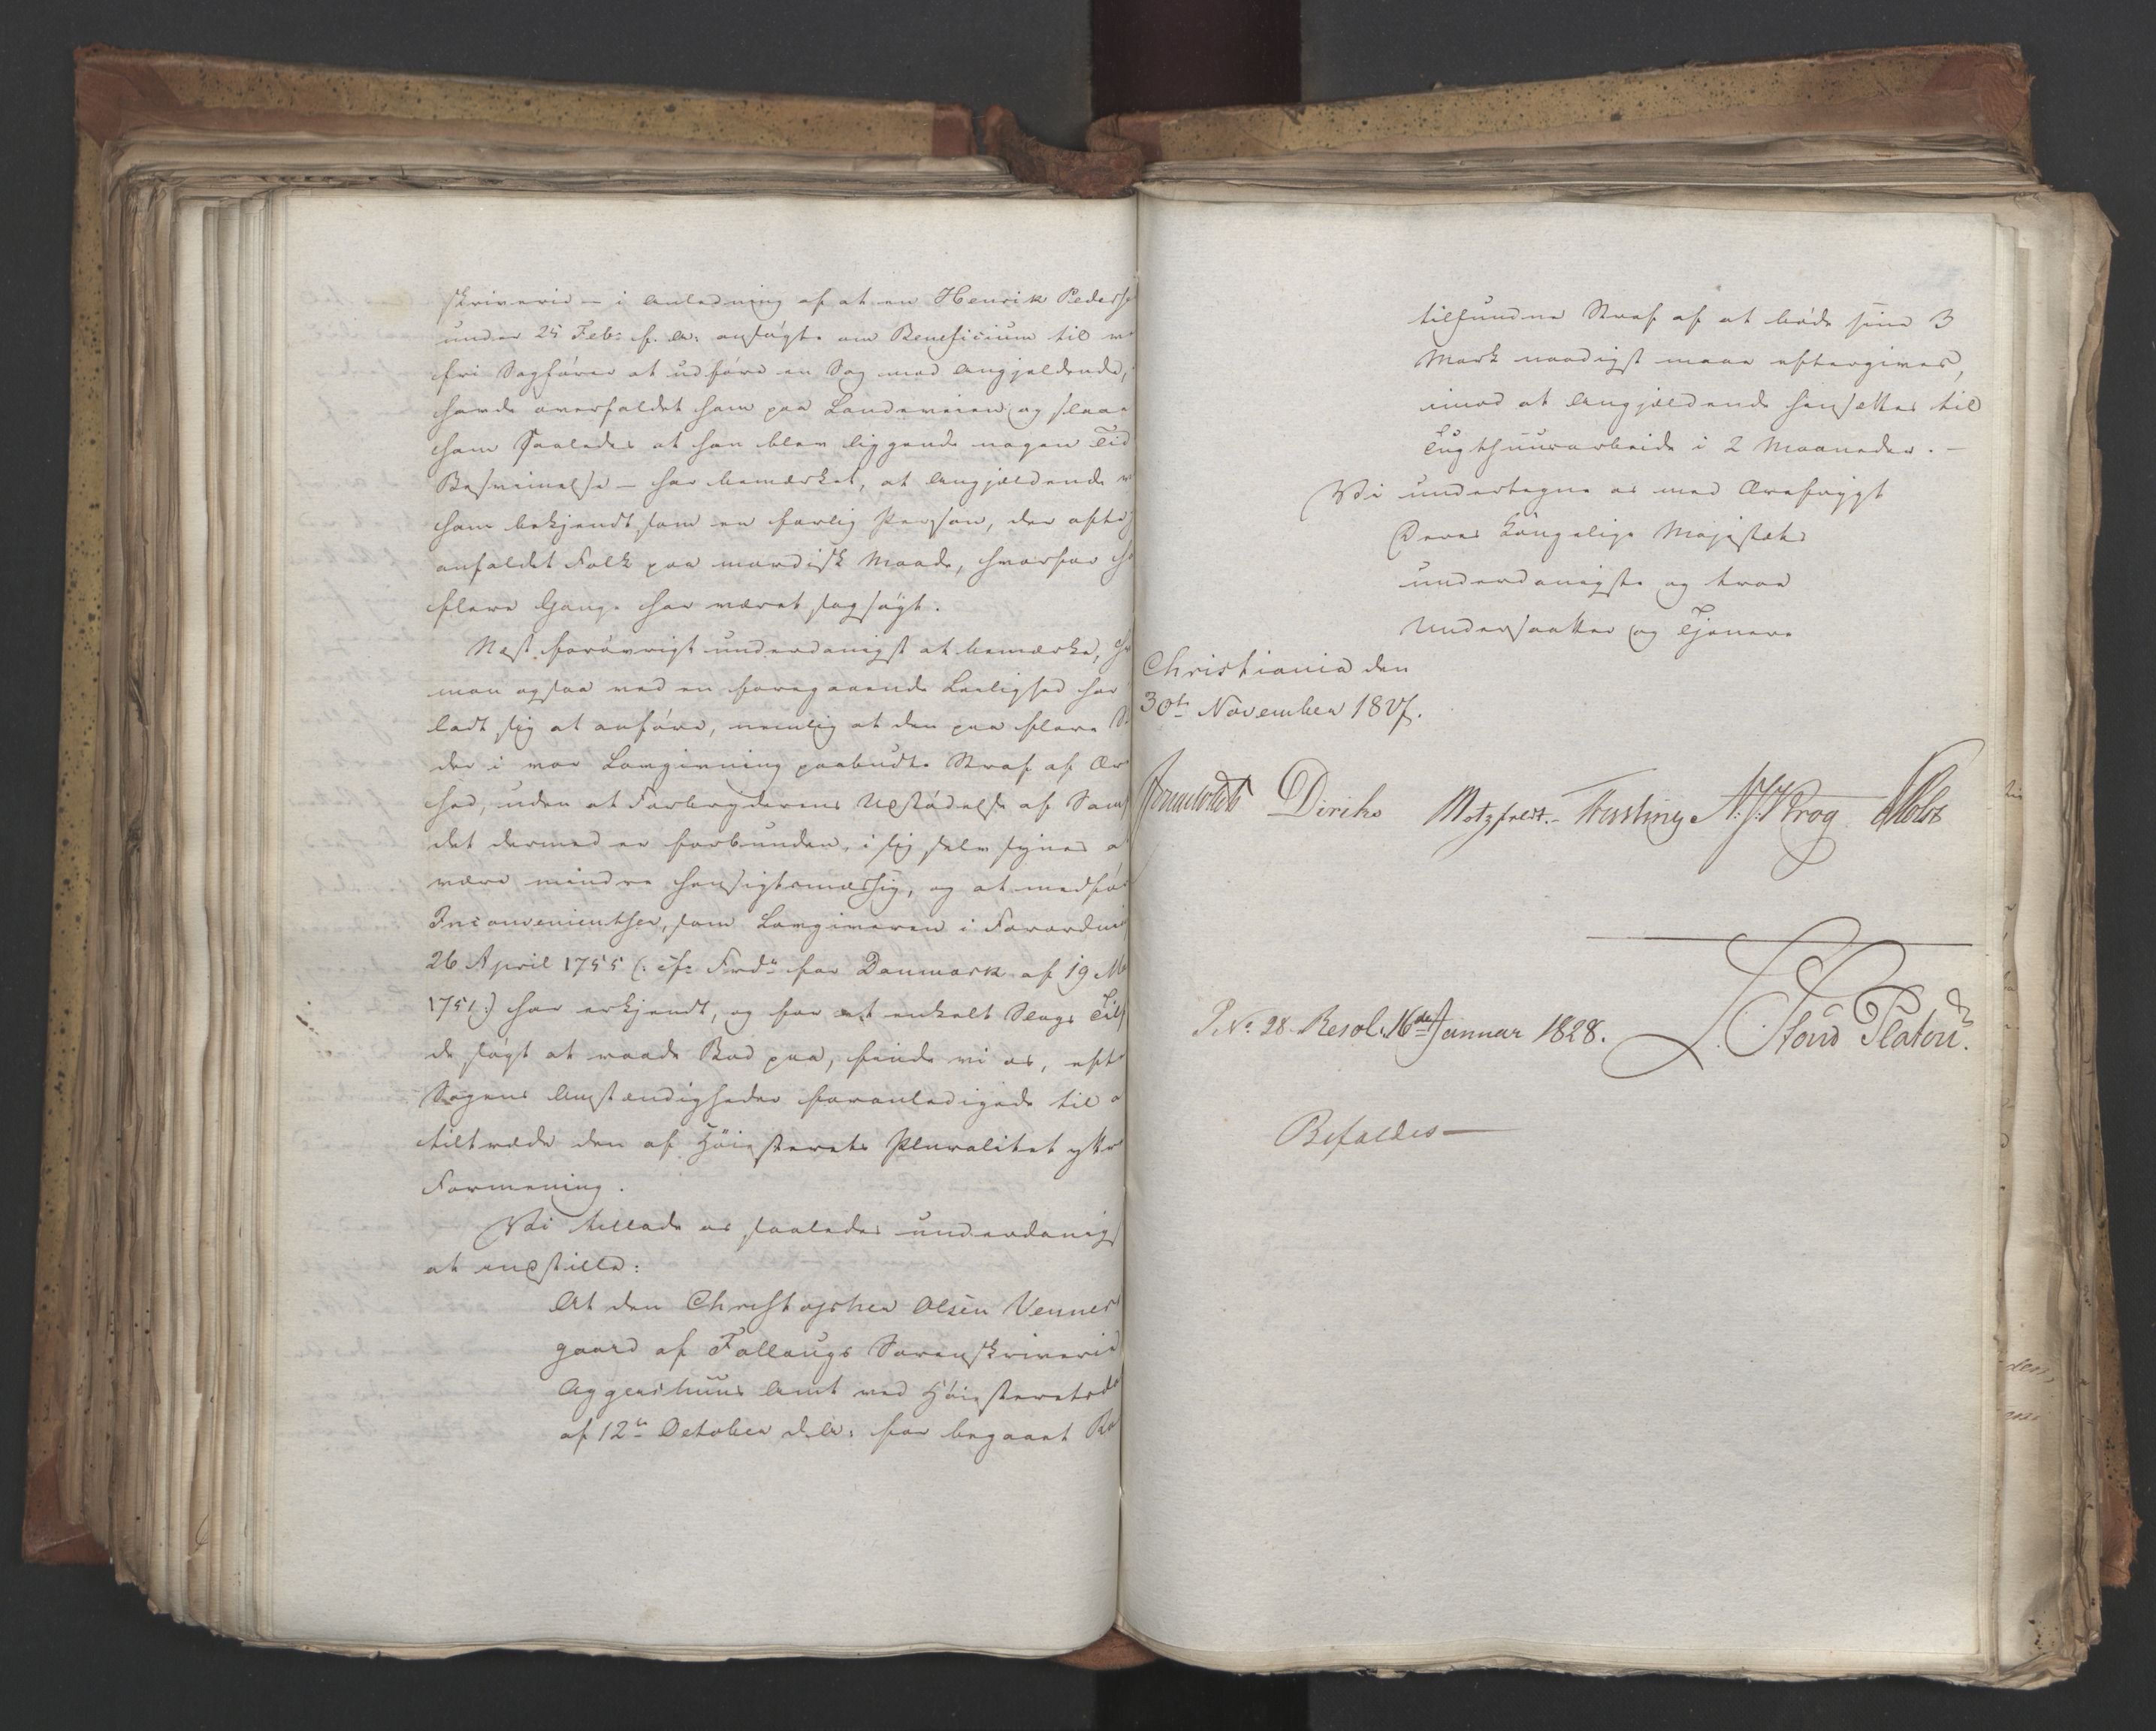 skriverie – i Anledning af at en Henrik Peders
under 25 Feb: f. A: ansøgte om Beneficium til
fri Sagfører at udføre en Sag mod Angjeldende,
havde overfaldet ham paa Landeveien og slaa
ham saaledes at han blev liggende nogen Tid
Besvimelse – har bemærket, at Angjældende
ham bekjendt som en farlig Person, der ofte
anfaldet Folk paa mordisk Maade, hvorfor
flere Gange har været sagsøgt.
Næst forøvrigt underdanigst at bemærke,
man ogsaa ved en foregaaende Leilighed har
ladt sig at anføre, nemlig at den paa flere
der i vor Lovgivning paabudte Straf af Ær
hed, uden at Forbryderens Udstødelse af Sam
det dermed er forbunden, i sig selv synes
være mindre hensigtsmæssig, og at medfø
Inconvenientser, som Lovgiveren i Forordni
26 April 1755 (: cfr Frdn for Danmark af 19
1751:) har erkjendt, og for et enkelt Slags
de søgt at raade Bod paa, finde vi os, eft
Sagens Omstændigheder foranledigede til
tiltræde den af Höiesterets Pluralitet yttr
Formening.
Vi tillade os saaledes underdanigs
at indstille:
At den Christopher Olsen Venner
gaard af Follougs Sorenskriverie
Aggershuus Amt ved Höiesterets
af 12te October d. A: for begaaet
tilfundne Straf af at bøde sine 3
Mark naadigst maae eftergives,
imod at Angjældende hensættes til
Tugthuusarbeide i 2 Maaneder. –
Vi undertegne os med Ærefrygt
Deres Kongelige Majestæts
underdanigste og troe
Undersaatter og Tjenere
Christiania den
30te November 1827.
Diriks Motzfeldt. – Fasting N. J. Krog
P. No. 28. Resol. 16de Januar 1828.
Stoud Platou.
Befaldes –